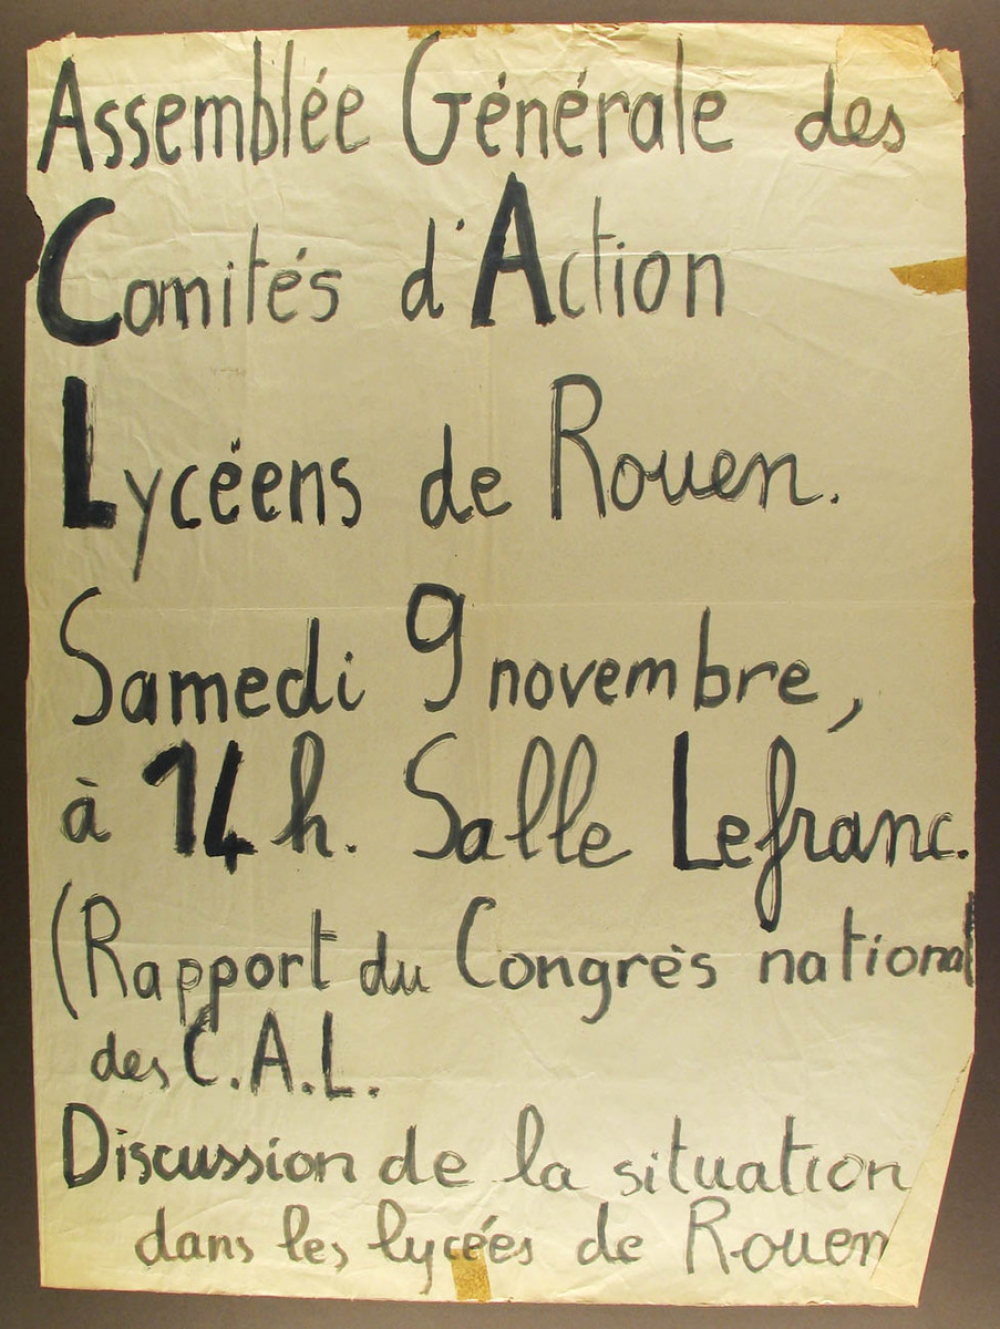 Assemblée Générale des
Comités d'Action
Lycéens de Rouen.
Samedi 9 novembre,
à 14h. Salle Lefranc.
(Rapport du Congrès national
des C.A.L.
Discussion de la situation
dans les lycées de Rouen